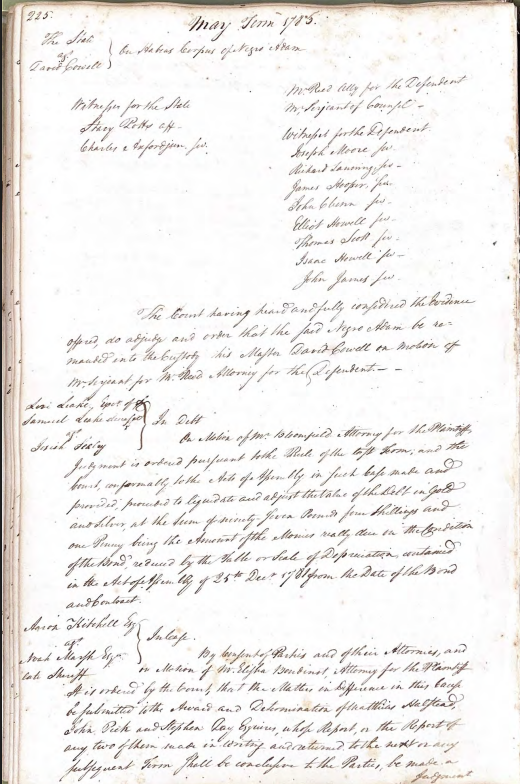 225.
May Term 1783.
The State
agt
David Cowell
On Habeas Corpus of Negro Adam
Mr. Reed Atty for the Defendent
Mr. Serjeant of Counsel -
Witnesses for the State
Stacy Potts aff.
Charles Axford jun. sw.
Witnesses for the Defendent
Joseph Moore sw.
Richard Lanning sw -
James Hooper, sw.
John Chenn sw -
Elliot Howell sw -
Thomas Scott sw -
Isaac Howell sw -
John James sw -
The Court having heard and fully considered the Evidence
offered, do adjudge and order that the said Negro Adam be re-
manded into the Custody his Master David Cowell on motion of
Mr. Serjeant for Mr. Reed Attorney for the Defendent - -
Levi Leake, Exr. of
Samuel Leake
agt
Josiah
In Debt
On Motion of Mr. Bloomfield Attorney for the Plaintiff,
Judgment is ordered pursuant to the Rule of the last Term; and the
Court, conformably to the Acts of Assembly in such Case made and
provided, proceeded to liquidate and adjust the Value of the Debt in Gold
and Silver, at the Sum of ninety seven Pounds four Shillings and
one Penny being the Amount of the Monies really due on the Condition
of the Bond, reduced by the Table or Scale of Depreciation, contained
in the Act of Assembly of 25th Decr. 1781 from the Date of the Bond
and Contract.
Aaron Kitchell Esq
agt
Noah Marsh Esqr.
late Sheriff
In Case.
By Consent of Parties and of their Attornies, and
on Motion of Mr. Elisha Boudinot, Attorney for the Plaintiff
It is ordered by the Court, that the Matters in difference in this Cause
be submitted to the Award and Determination of Matthias Halstead,
John Peck and Stephen Day Esquires, whose Report, or the Report of
any two of them made in writing and returned to the next or any
subsequent Term shall be conclusive to the Parties, be made a
Judgement